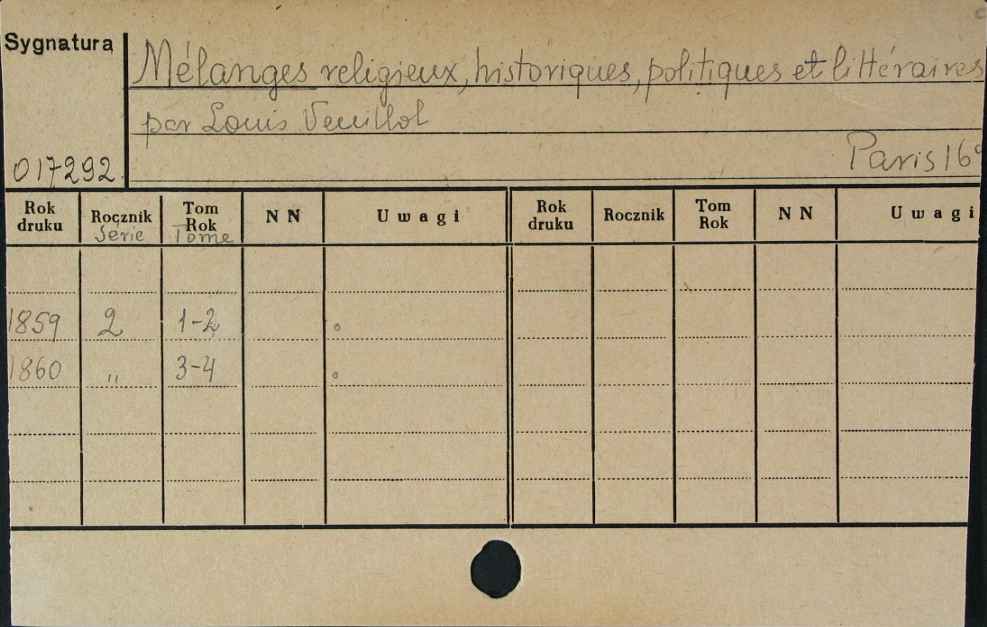 Sygnatura
Mélanges religieux, historiques, politiques et littéraires
par Louis Veuillot
017292.
Paris 16°
Rok druku Rocznik Série Tom Rok Tome NN Uwagi Rok druku Rocznik Tom Rok NN Uwagi
1859 2 1-2
1860 " 3-4